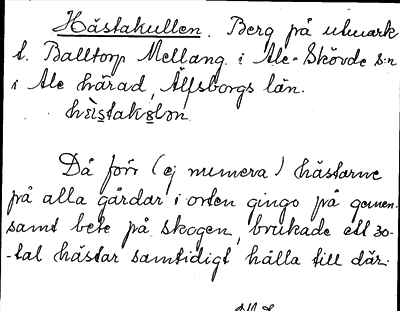 Hästakullen. Berg på utmark
t. Balltorp Mellang. i Ale-Skövde s:n
i Ale härad, Älfsborgs län.
hèstakɷlən.
Då förr (ej numera) hästarne
på alla gårdar i orten gingo på gemen-
samt bete på skogen, brukade ett 30-
-tal hästar samtidigt hålla till där.